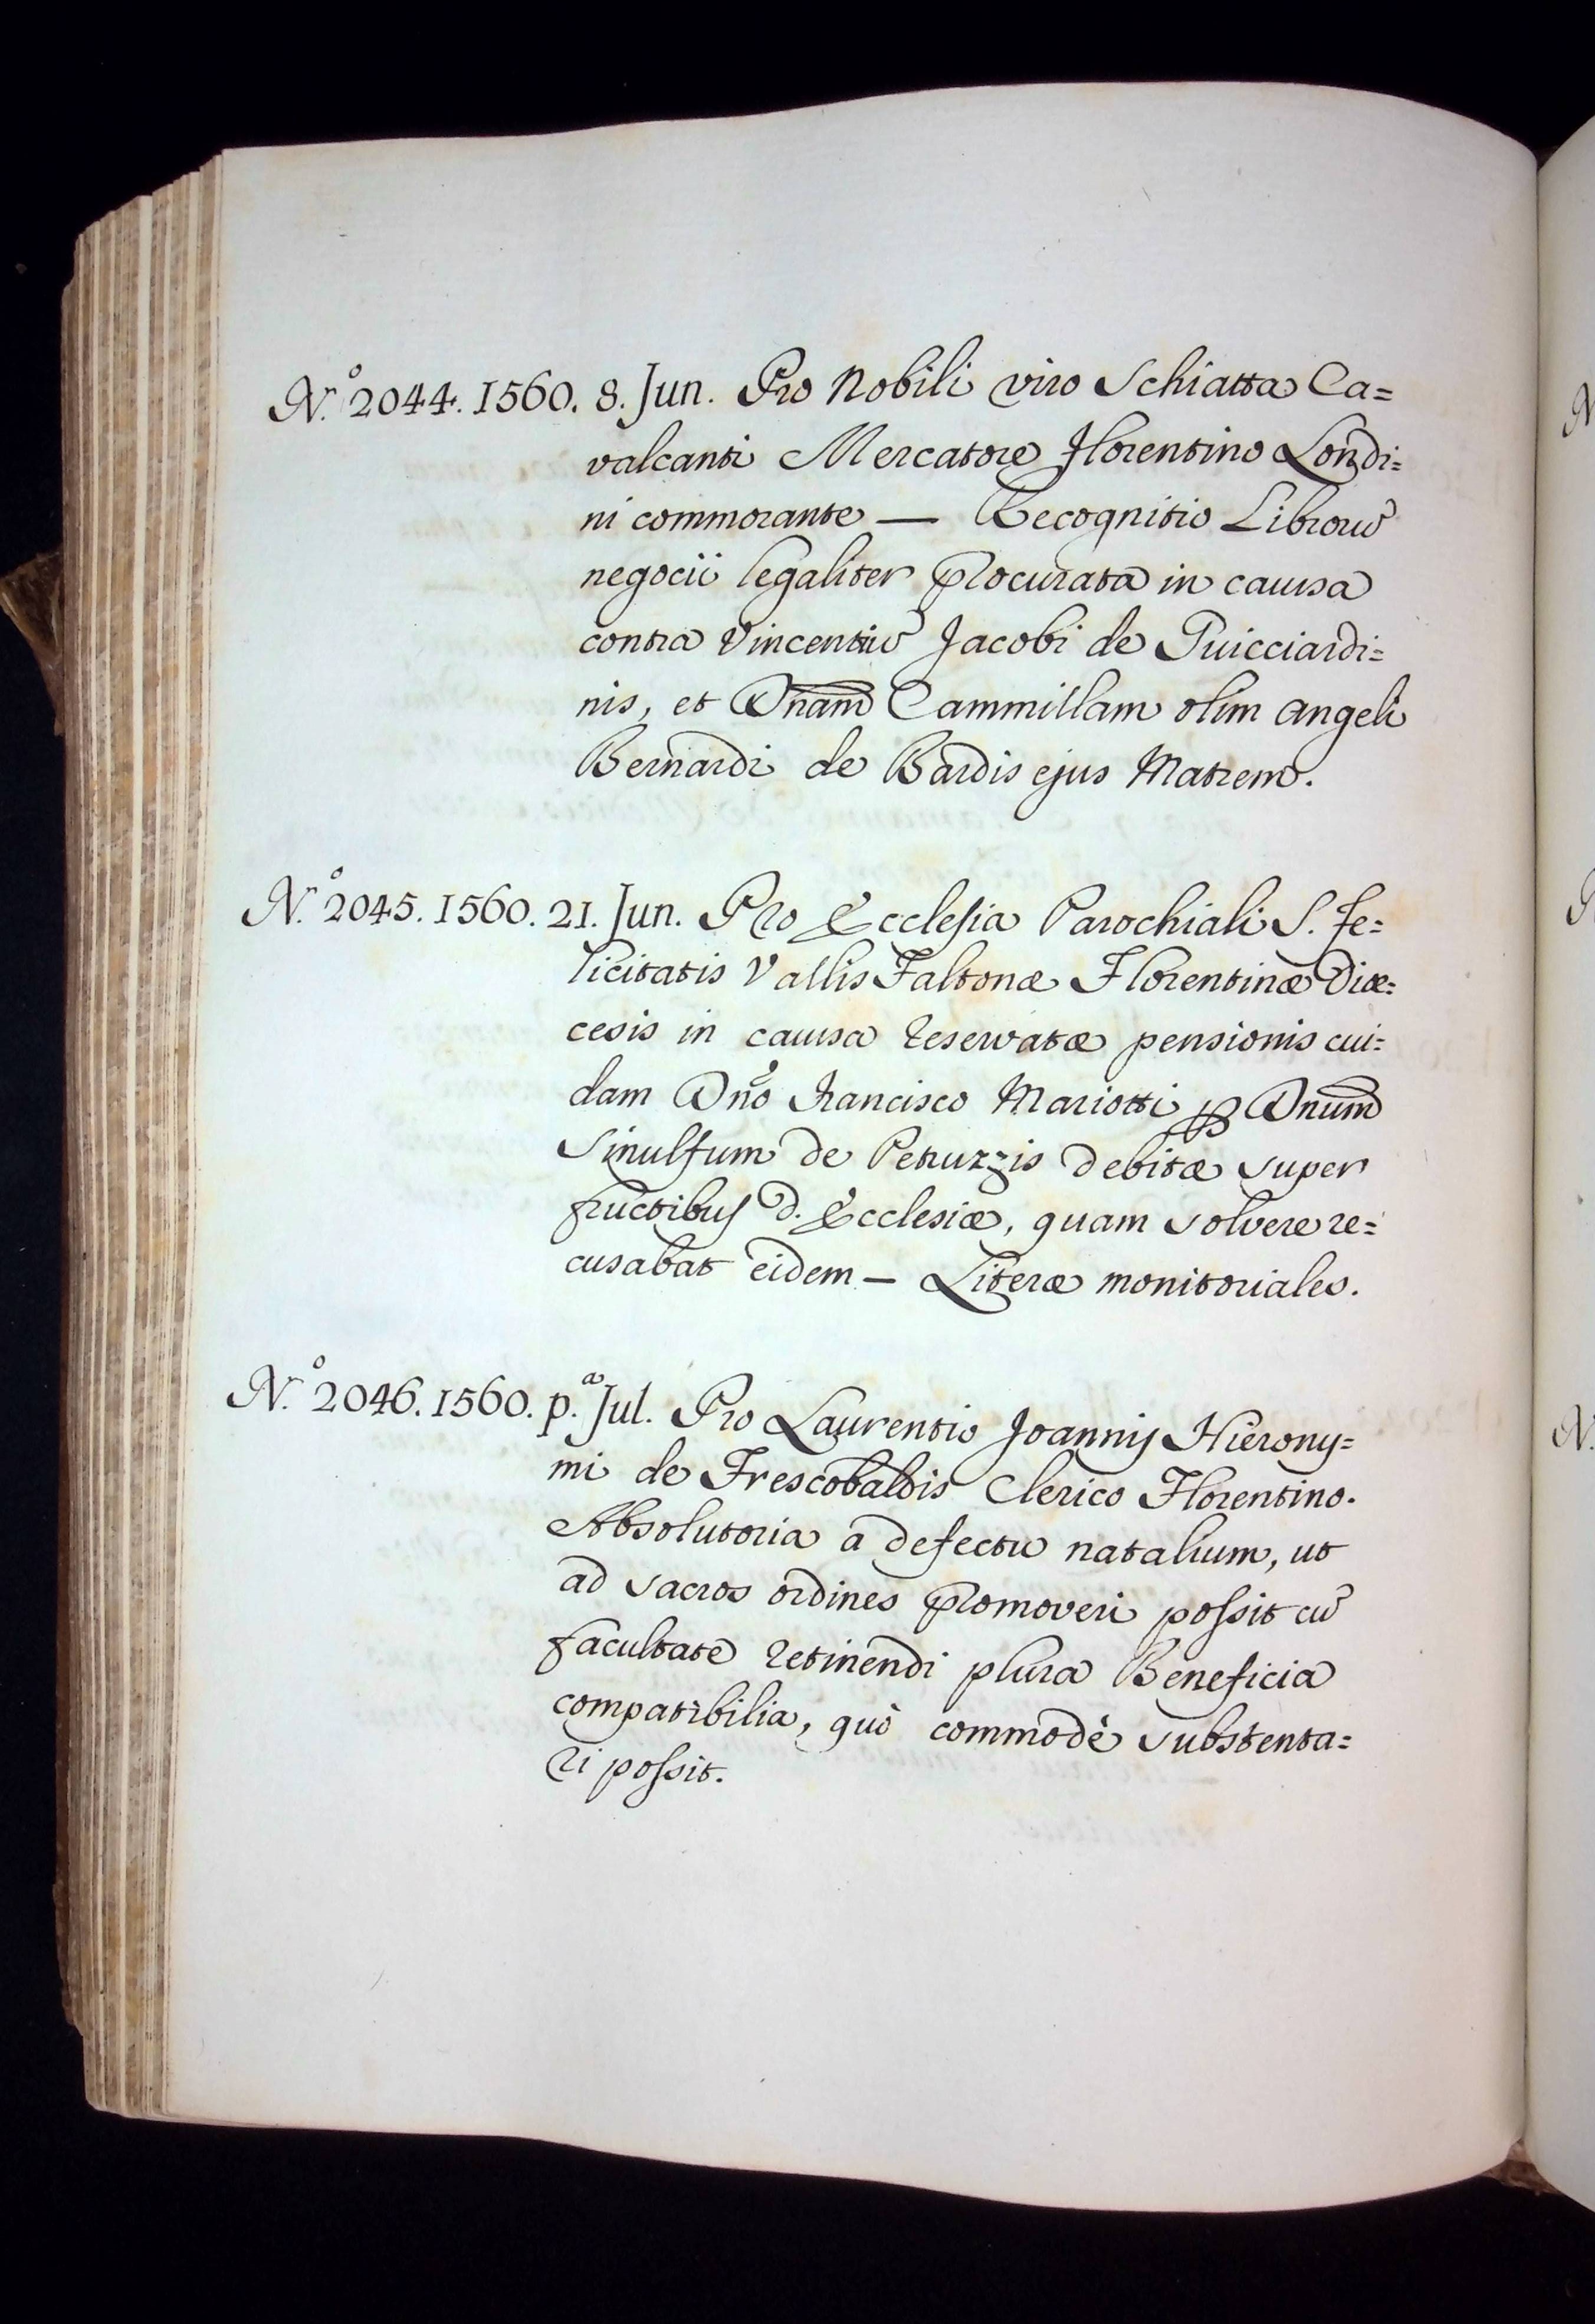 N.º 2044. 1560. 8. Jun. Pro Nobili viro Schiatta Ca=
valcanti Mercatore Florentino Londi=
ni commorante — Recognitio Librorũ
negocii legaliter procurata in causa
contra Vincentiũ Jacobi de Guicciardi=
nis, et Dnam Cammillam olim Angeli
Bernardi de Bardis ejus Matrem.
N.º 2045. 1560. 21. Jun. Pro Ecclesia Parochiali S. Fe=
licitatis Vallis Faltonæ Florentinæ Diœ=
cesis in causa reservatæ pensionis cui=
dam Dño Francisco Mariotti p Dnum
Sinulfum de Petruzzis debitæ super
fructibus d. Ecclesiæ, quam solvere re=
cusabat eidem — Literæ monitoriales.
N.º 2046. 1560. p.ª Jul. Pro Laurentio Joannis Hierony=
mi de Frescobaldis Clerico Florentino.
Absolutoria a defectu natalium, ut
ad sacros ordines promoveri possit cũ
facultate retinendi plura Beneficia
compatibilia, quò commodè substenta=
ri possit.